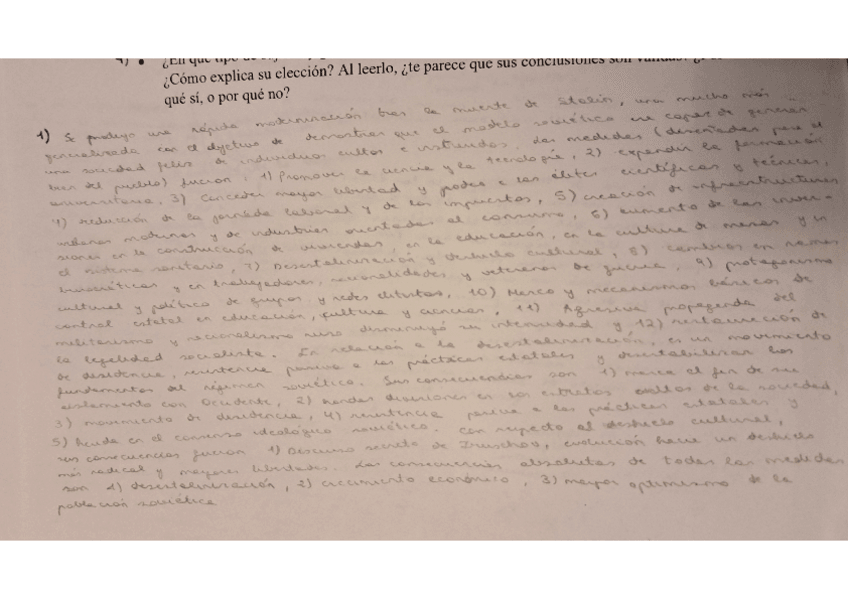 ¿En qué tipo de
¿Cómo explica su elección? Al leerlo, ¿te parece que sus conclusiones son válidas?
qué sí, o por qué no?
1) Se produjo una rápida modernización tras la muerte de Stalin, una mucho más
generalizada con el objetivo de demostrar que el modelo soviético era capaz de generar
una sociedad feliz de individuos cultos e instruidos. Las medidas (diseñadas para el
bien del pueblo) fueron, 1) Promover la ciencia y la tecnología, 2) expandir la formación
universitaria, 3) Conceder mayor libertad y poder a las élites científicas y técnicas,
4) reducción de la jornada laboral y de los impuestos, 5) creación de infraestructuras
urbanas modernas y de industrias orientadas al consumo, 6) aumento de las inver-
siones en la construcción de viviendas, en la educación, en la cultura de masas y en
el sistema sanitario, 7) Desestalinización y deshielo cultural, 8) cambios en ramas
burocráticas y en trabajadores, nacionalidades y veteranos de guerra, 9) protagonismo
cultural y político de grupos y redes elitistas, 10) Marco y mecanismos básicos de
control estatal en educación, cultura y ciencias, 11) Agresiva propaganda del
militarismo y nacionalismo ruso disminuyó su intensidad y 12) restauración de
la legalidad socialista. En relación a la desestalinización, es un movimiento
de disidencia, resistencia pasiva a las prácticas estatales y desestabilizar los
fundamentos del régimen soviético. Sus consecuencias son 1) marca el fin de su
aislamiento con Occidente, 2) hondas divisiones en los estratos cultos de la sociedad,
3) movimiento de disidencia, 4) resistencia pasiva a las prácticas estatales y
5) en el consenso ideológico soviético. Con respecto al deshielo cultural,
sus consecuencias fueron 1) Discurso secreto de Jruschov, evolución hacia un deshielo
más radical y mayores libertades. Las consecuencias absolutas de todas las medidas
son 1) desestalinización, 2) crecimiento económico, 3) mayor optimismo de la
población soviética